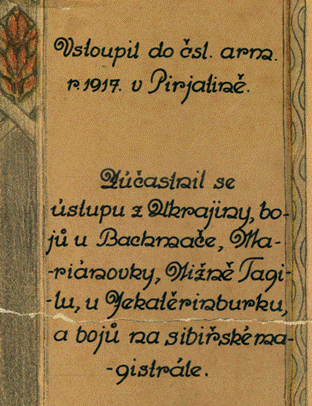 Vstoupil do čsl. arm.
r. 1917. v Pirjatině.
Zúčastnil se
ústupu z Ukrajiny, bo-
jů u Bachmače, Ma-
-riánovky, Nižně Tagi-
-lu, u Jekatěrinburku,
a bojů na sibiřské ma-
-gistrále.